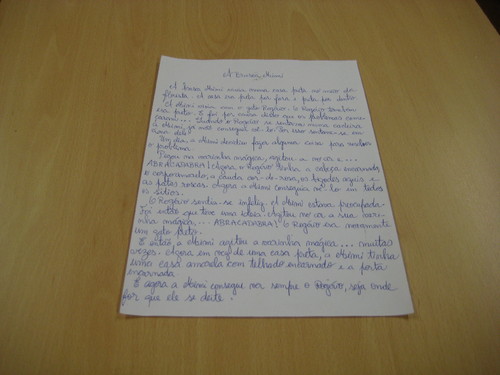 A Bruxa Mimi
A bruxa Mimi vivia numa casa preta no meio da
floresta. A casa era preta por fora e preta por dentro.
A Mimi vivia com o gato Rogério. O Rogério também
era preto. E foi por causa disso que os problemas come-
çaram... Quando o Rogério se sentava numa cadeira
a Mimi já não conseguia vê-lo. Por isso sentava-se em
cima dele.
Um dia, a Mimi decidiu fazer alguma coisa para resolver
o problema.
Pegou na varinha mágica, agitou-a no ar e...
ABRACADABRA! Agora o Rogério tinha a cabeça encarnada,
o corpo amarelo, a cauda cor-de-rosa, os bigodes azuis e
as patas roxas. Agora a Mimi conseguia vê-lo em todos
os sítios.
O Rogério sentia-se infeliz. A Mimi estava preocupada.
Foi então que teve uma ideia. Agitou no ar a sua vari-
nha mágica... ABRACADABRA! O Rogério era novamente
um gato preto.
E então, a Mimi agitou a varinha mágica... muitas
vezes. Agora em vez de uma casa preta, a Mimi tinha
uma casa amarela com telhado encarnado e a porta
encarnada.
E agora a Mimi consegue ver sempre o Rogério, seja onde
for que ele se deite.